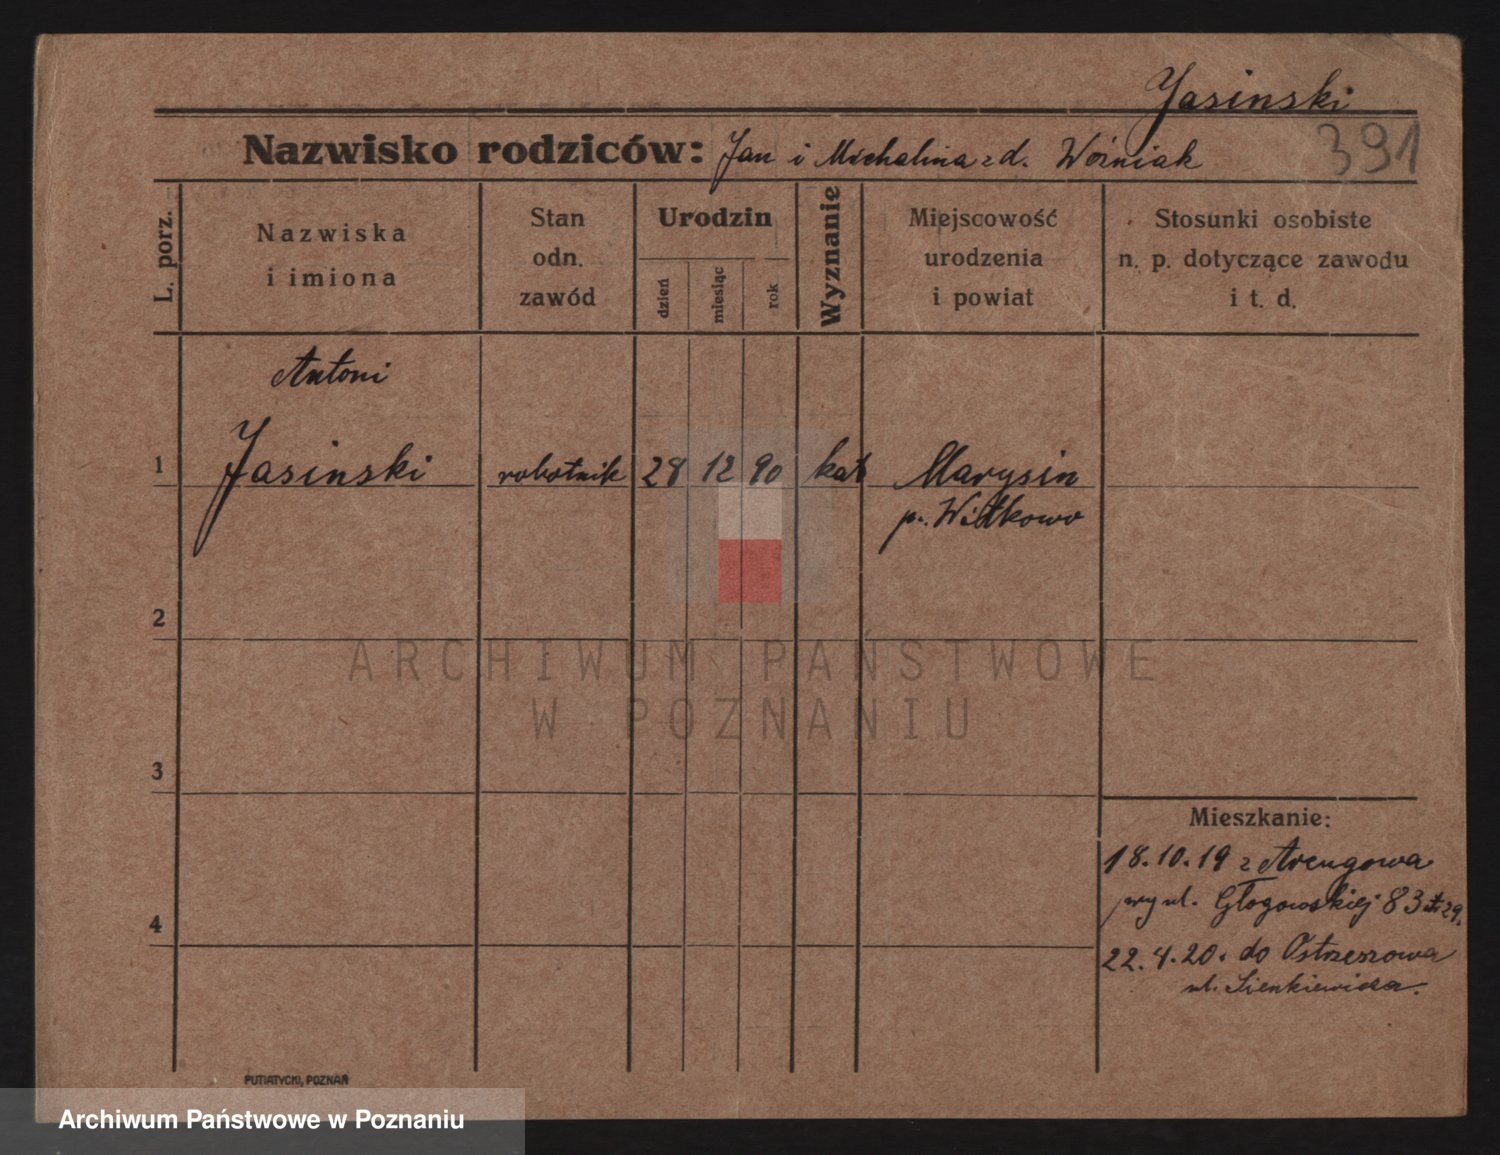 Jasinski
Nazwisko rodziców: Jan i Michalina z d. Woźniak
391
L. porz.
Nazwiska
i imiona
Stan
odn.
zawód
Urodzin
dzień
miesiąc
rok
Wyznanie
Miejscowość
urodzenia
i powiat
Stosunki osobiste
n. p. dotyczące zawodu
i t. d.
Antoni
1 Jasinski robotnik 28 12 90 kat Marysin
p. Witkowo
2
ARCHIWUM PAŃSTWOWE
W POZNANIU
3
Mieszkanie:
18.10.19 z
ul. Głogowskiej 83 29.
4
22.4.20. do Ostrzeszowa
ul. Sienkiewicza.
PUTIATYCKI, POZNAŃ
Archiwum Państwowe w Poznaniu